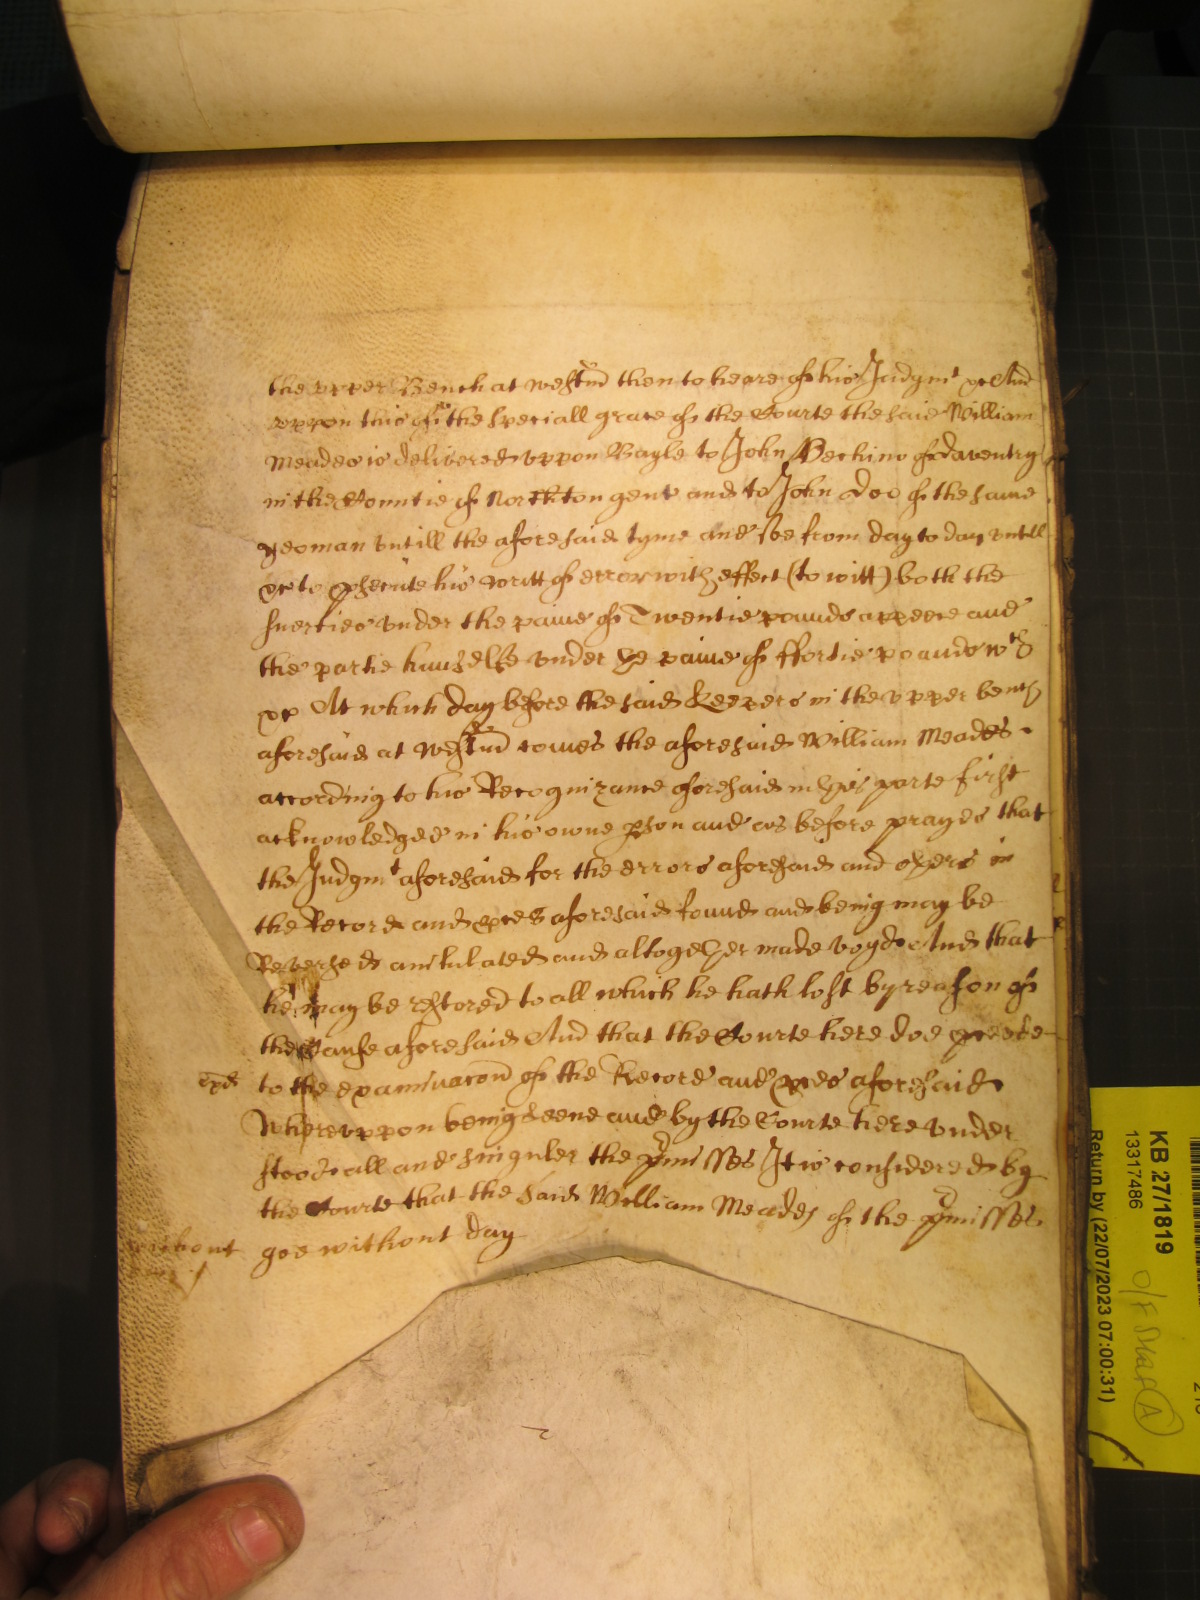 the vpper Bench at westm̃ then to heare of his Judgmt &c And
vppon this of the speciall grace of the Courte the said William
Meades is delivered vppon Bayle to John of daventry
in the Countie of North'ton gent and to John Doo of the same
yeoman vntill the aforesaid tyme and soe from day to day vntill
&c to p̱secute his writt of error with effect (to witt) both the
suerties vnder the paine of Twentie pounds appeere and
the partie himselfe vnder ye paine of ffortie poundswth
&c At which day before the said Keepers in the vpper bench
aforesaid at westm̃ comes the aforesaid William Meades
according to his Recognizance aforesaid in yis parte first
acknowledged in his owne p̱son and as before prayes that
the Judgmt aforesaid for the errors aforesaid and oyers in
the Record and p̱ces aforesaid found and being may be
Reversed anihilated and altogeyer made voyde And that
he may be restored to all which he hath lost by reason of
the Cause aforesaid And that the Courte here doe
to the examinacon̄ of the Record and p̱ces aforesaid
Wherevppon being seene and by the Courte here vnder
stood all and singuler the p̱misses It is considered by
the Courte that the said William Meades of the p̱misses
goe without day
KB 27/1819
13317486
Return by (22/07/2023 07:00:31)
A